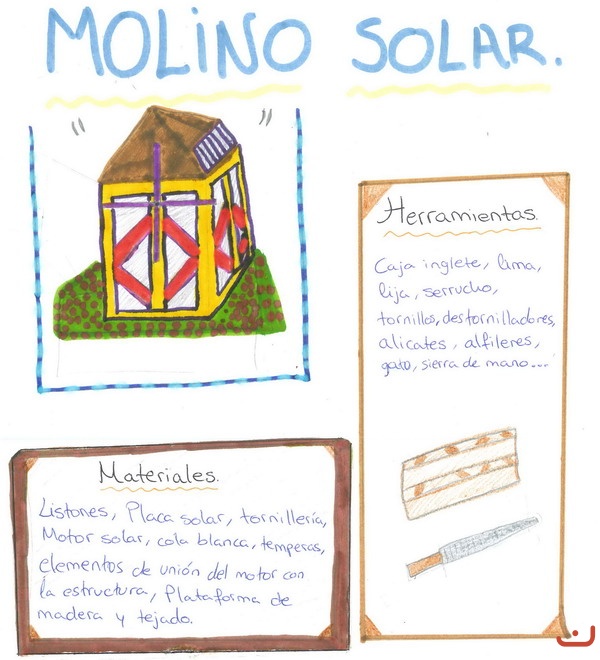 MOLINO SOLAR.
Herramientas.
Caja inglete, lima,
lija, serrucho,
tornillos, destornilladores,
alicates, alfileres,
gato, sierra de mano...
Materiales.
Listones, Placa solar, tornillería,
Motor solar, cola blanca, temperas,
elementos de unión del motor con
la estructura, Plataforma de
madera y tejado.